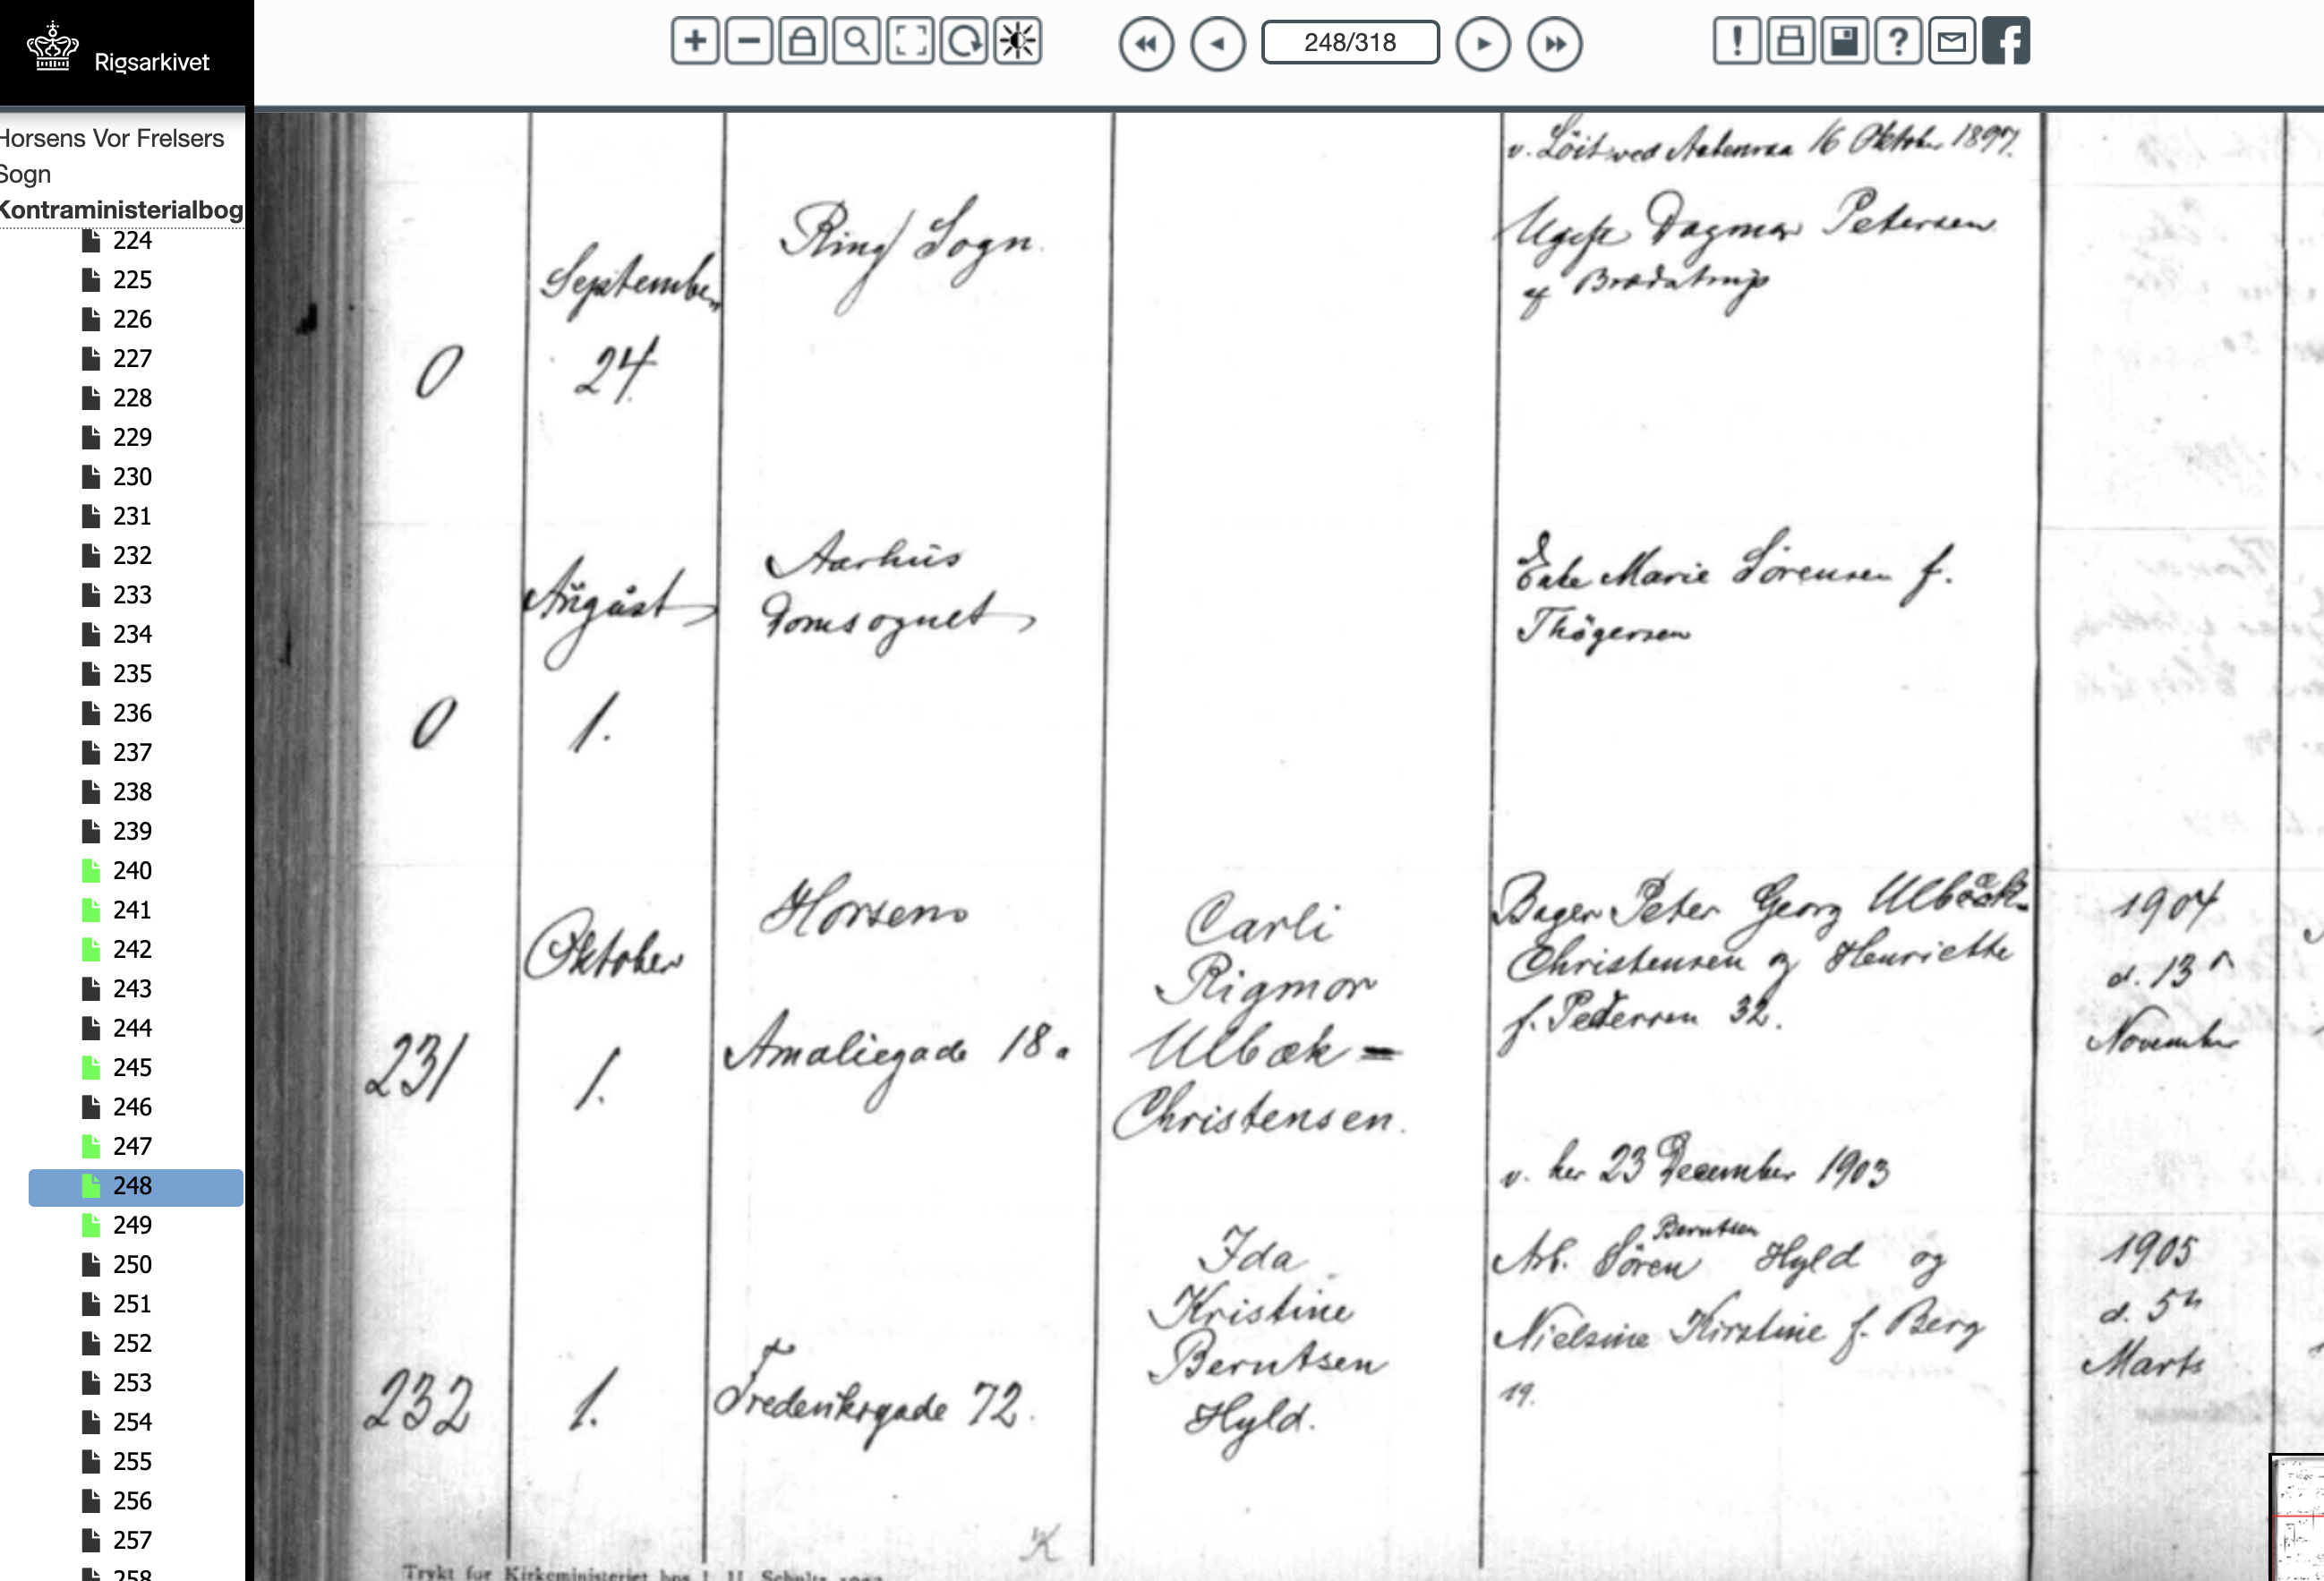 Rigsarkivet
248/318
Horsens Vor Frelsers
Sogn
Kontraministerialbog
224
225
226
227
228
229
230
231
232
233
234
235
236
237
238
239
240
241
242
243
244
245
246
247
248
249
250
251
252
253
254
255
256
257
258
v. Löit ved Aabenraa 16 Oktober 1897.
0
September
24.
Ring Sogn.
Ugift Dagmar Petersen
af Brædstrup
0
August
1.
Aarhus
Domsognet
Marie Sörensen f.
Thögersen
231
Oktober
1.
Horsens
Amaliegade 18a
Carli
Rigmor
Ulbæk =
Christensen.
Bager Peter Georg Ulbæk-
Christensen og Henriette
f. Pedersen 32.
v. her 23 December 1903
1904
d. 13
November
232
1.
Frederiksgade 72.
Ida
Kristine
Berntsen
Hyld.
Berntsen
Arb. Sören Hyld og
Nielsine Kirstine f. Berg
19.
1905
d. 5
Marts
K
Trykt for Kirkeministeriet hos J. H. Schultz